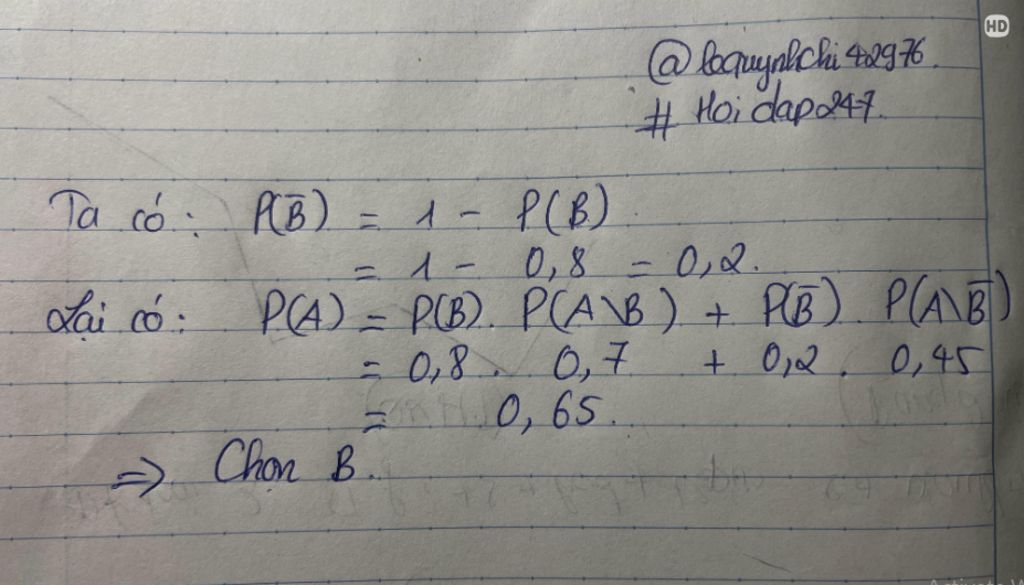 HD
@loquynhchi42976.
# Hoidap247.
Ta có: P(B̅) = 1 - P(B).
= 1 - 0,8 = 0,2.
Lại có: P(A) = P(B). P(A\B) + P(B̅). P(A\B̅)
= 0,8. 0,7 + 0,2. 0,45
= 0,65.
⇒ Chọn B.